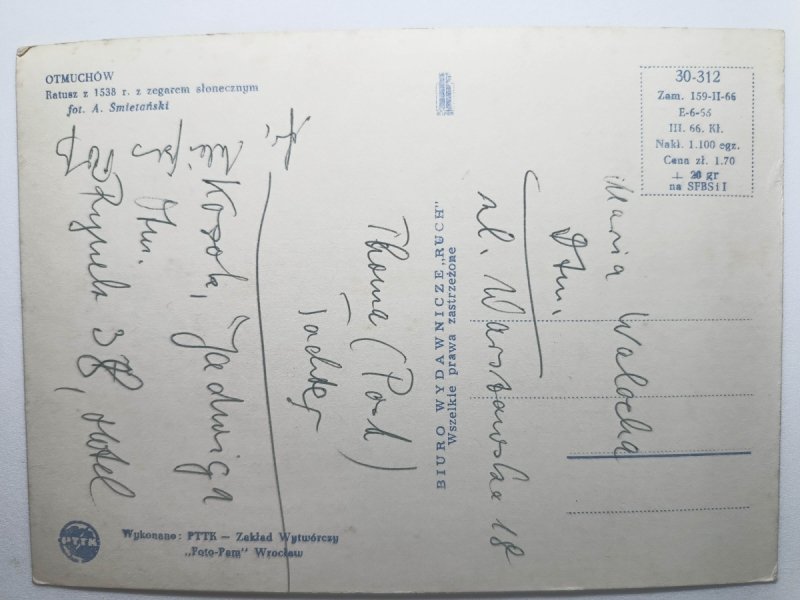 OTMUCHÓW
Ratusz z 1538 r. z zegarem słonecznym
fot. A. Śmietański
30-312
Zam. 159-II-66
E-6-56
III. 66. Kł.
Nakł. 1.100 egz.
Cena zł. 1.70
+ 20 gr
na SFBSiI
BIURO WYDAWNICZE „RUCH"
Wszelkie prawa zastrzeżone
Maria Walocha
Otm.
ul. Warszawska 18
Thoma (Post)
Tochter
Kozok, Jadwiga
Otm.
Rynek 38, Hotel
PTTK
Wykonano: PTTK — Zakład Wytwórczy
„Foto-Pam" Wrocław